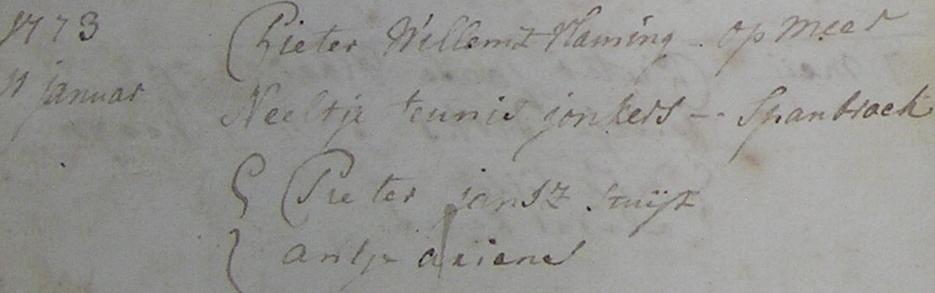 1773 Pieter Willemsz Vlaming - op meer
11 januar Neeltje teunis jonkers -- Spanbroek
Pieter jansz
antje ariens